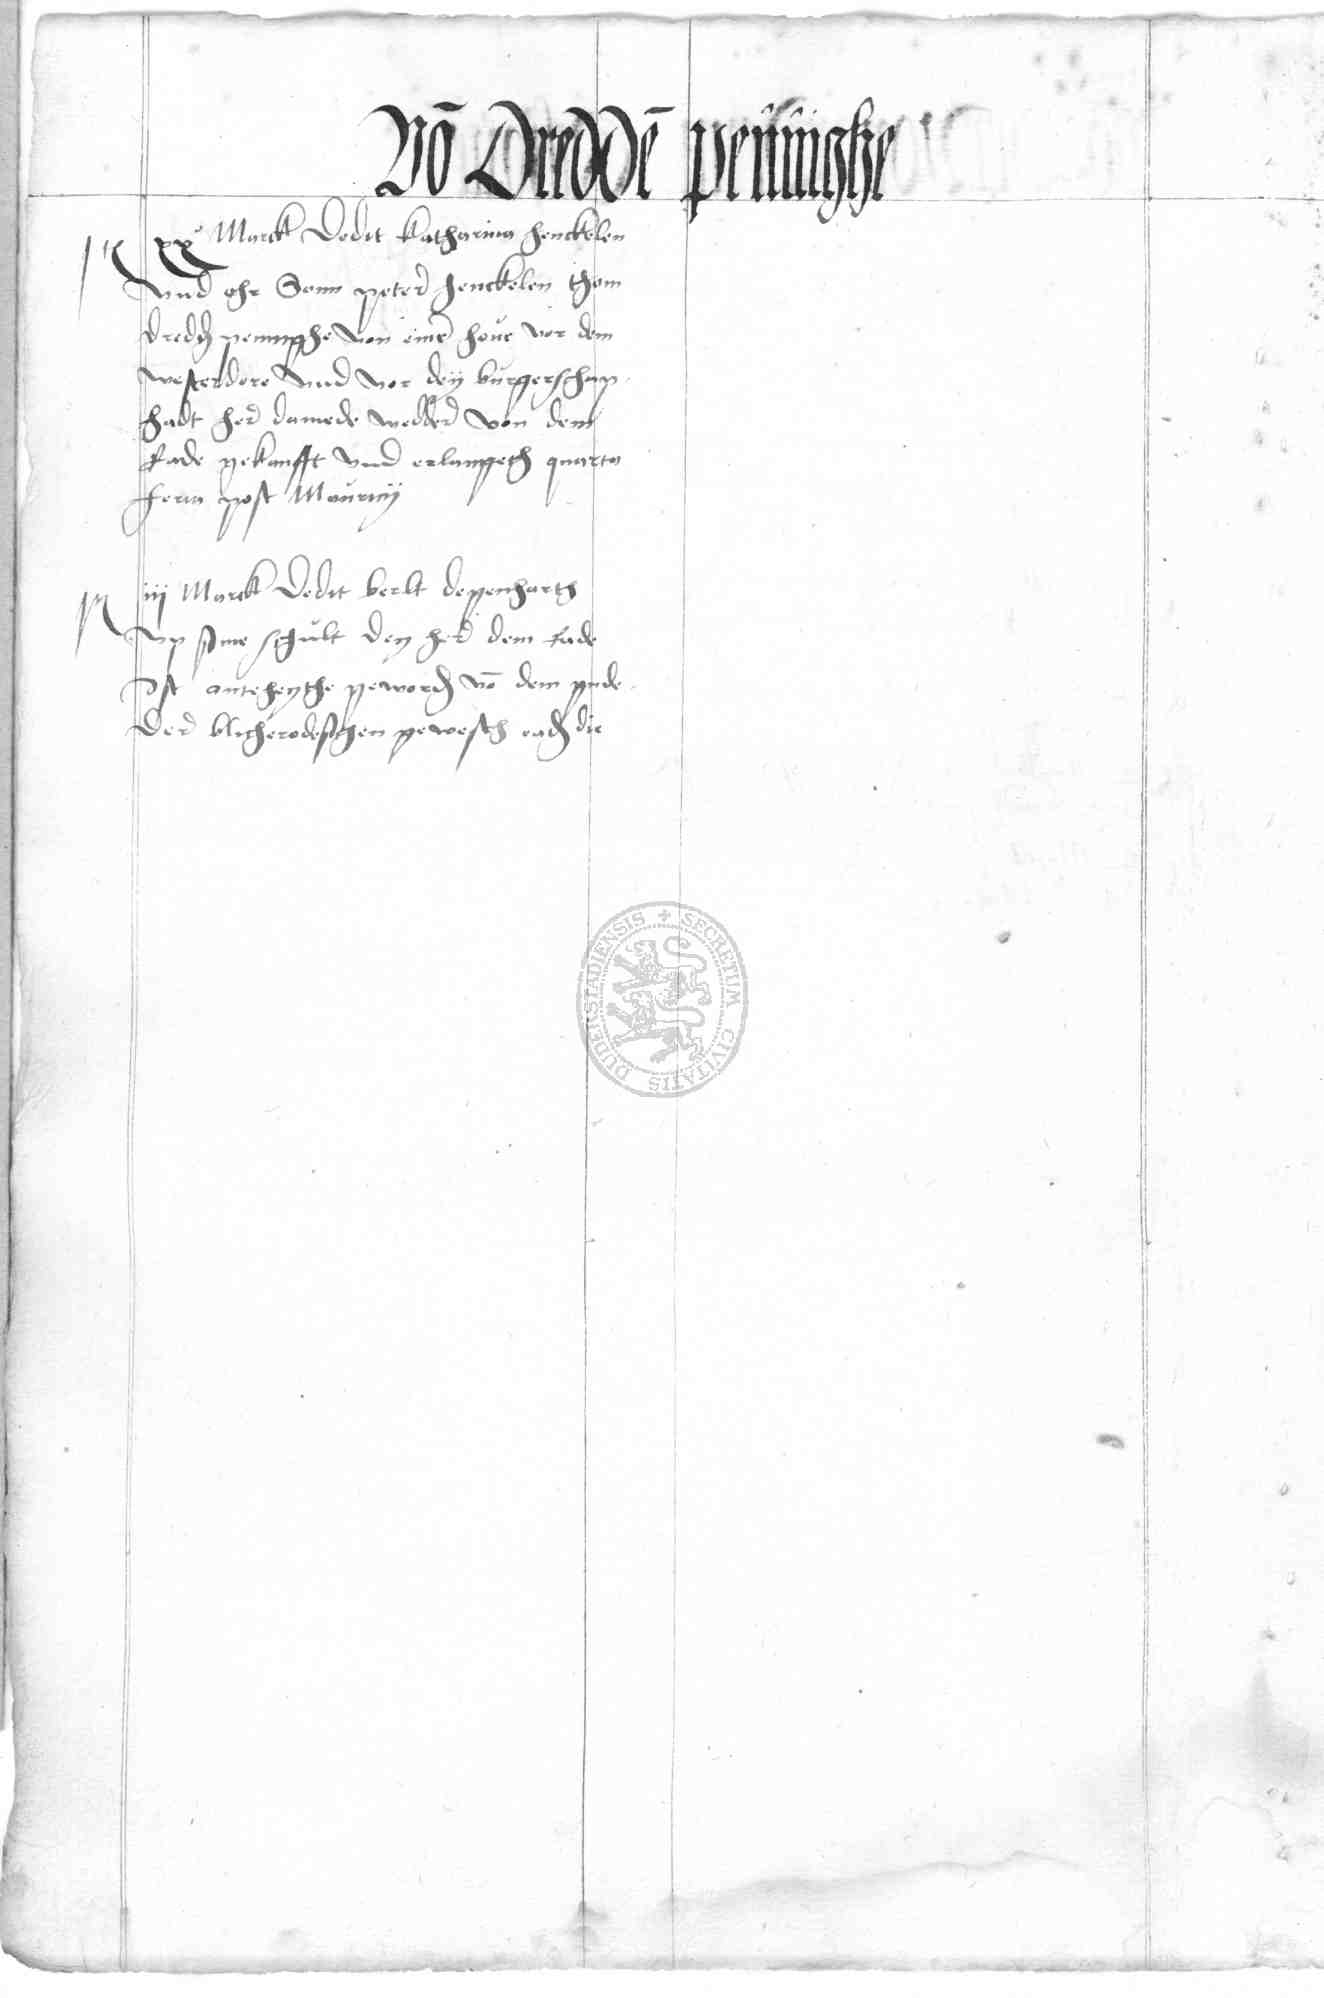 Vō Dreddē pēnīghe
xx Marck Dedit Katharina henckelen
vnd ohr Sonn peter henckelen thom
dredē pennighe von einer houe vor dem
westerdore vnd vor dey burgerschap
hadt her damede wedder von dem
Rade gekaufft vnd erlangeth quarta
feria post Mauricij
iij Marck Dedit berlt degenharth
vp syne schult dey her dem Rade
Ist geworden vō dem gude
der blicherodeschen gewesth
DUDERSTADIENSIS + SECRETUM CIVITATIS